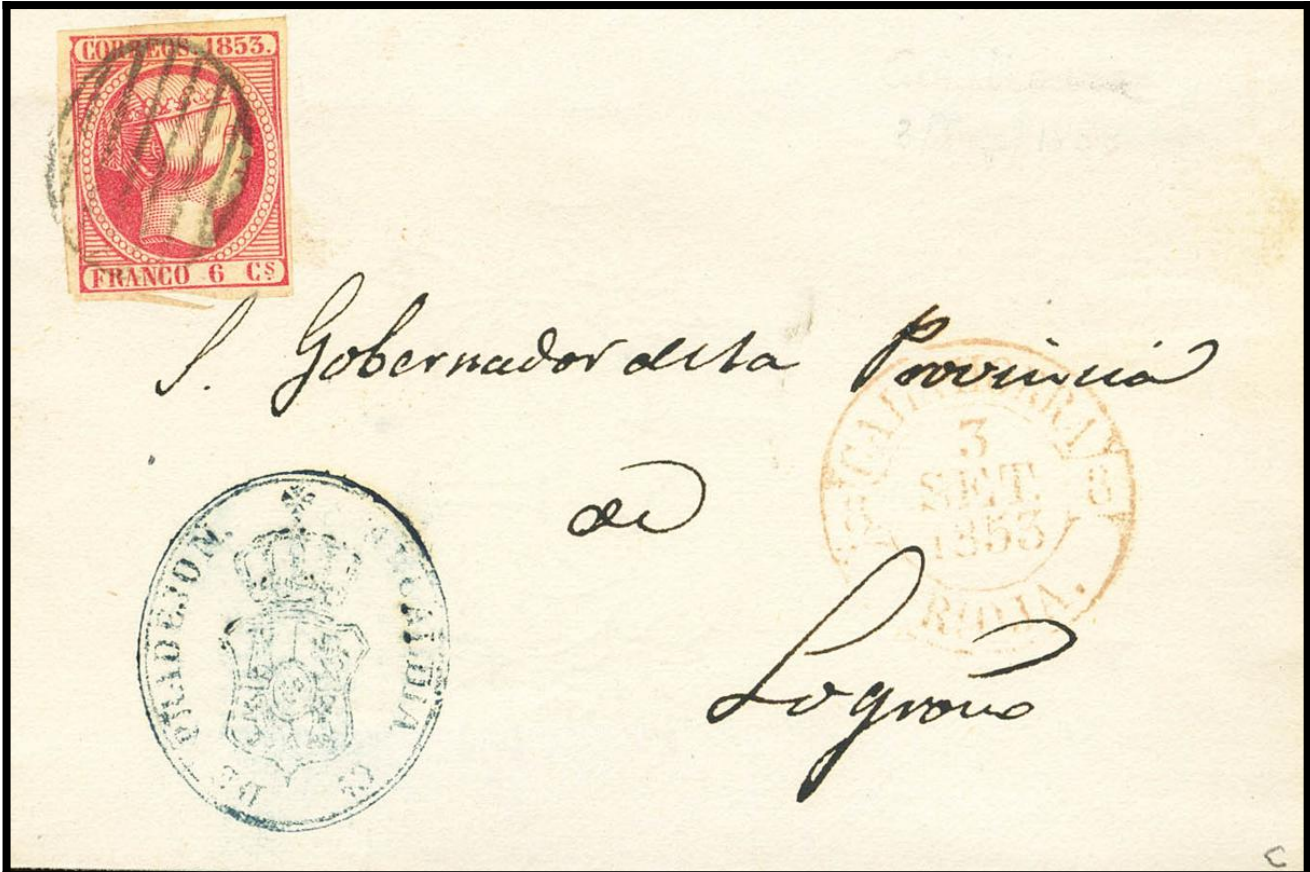 CORREOS. 1853.
FRANCO 6 Cs
S. Gobernador de la Provincia
de
Logroño
CALAHORRA
3
SET.
1853
RIOJA.
ALCALDIA
DE PRADEJON.
C